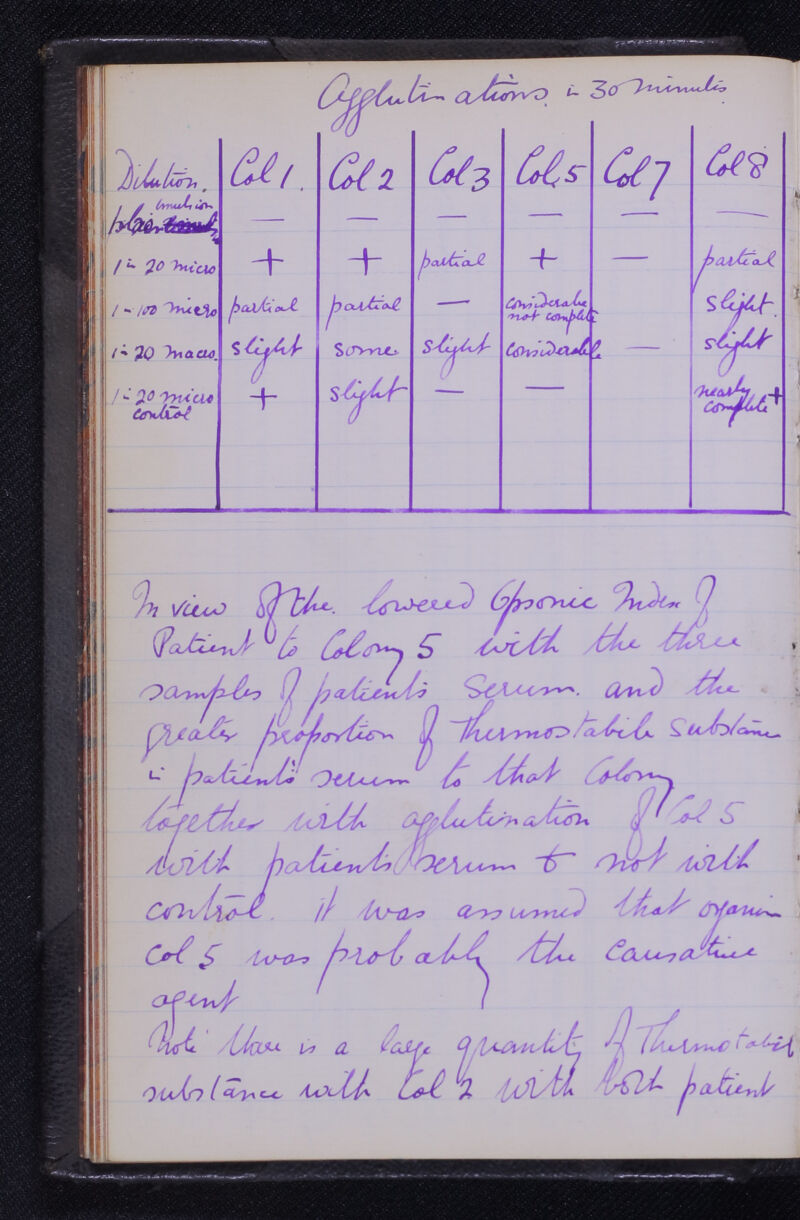 Agglutinations in 30 minutes
Dilution. Col 1. Col 2 Col 3 Col. 5 Col 7 Col 8
emulsion
plain — — — — — —
1 in 20 micro + + partial + — partial
1 in 100 micro partial partial — considerable not complete slight.
1 in 20 macro. slight some. slight considerable — slight
1 in 20 micro control + slight — — nearly complete +
In view of the lowered Opsonic Index of
Patient to Colony 5 with the three
samples of patient's Serum. and the
greater proportion of Thermostabile substance
in patient's serum to that Colony
together with agglutination of Col 5
with patients serum & not with
control. it was assumed that organism
Col 5 was probably the causative
agent
Note there is a large quantity of Thermostabile
substance with Col 2 with both patient